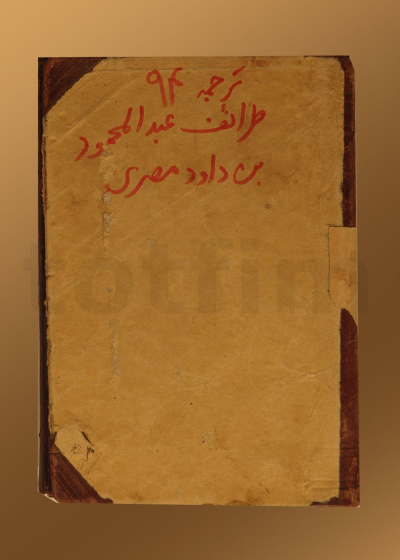 ترجمه ۹۴
طرائف عبدالمحمود
بن داود مصری
totfim